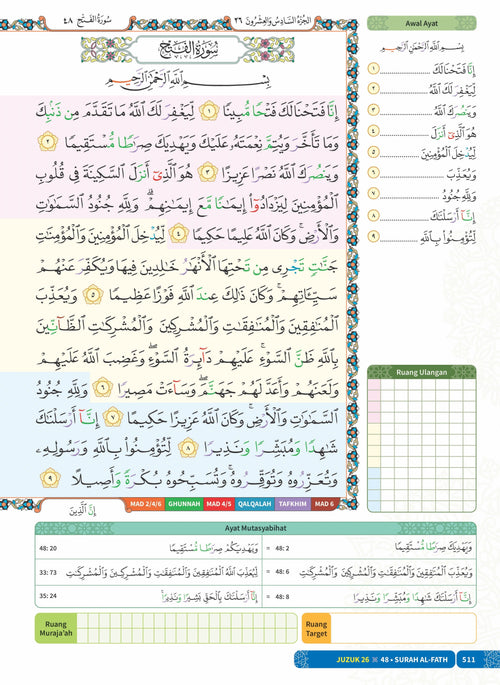 سُورَةُ الفَتْح ٤٨
الجُزْءُ السَّادِسُ وَالعِشْرُونَ ٢٦
سُورَةُ الفَتْحِ
بِسْمِ اللَّهِ الرَّحْمَٰنِ الرَّحِيمِ
إِنَّا فَتَحْنَا لَكَ فَتْحًا مُّبِينًا ١ لِّيَغْفِرَ لَكَ اللَّهُ مَا تَقَدَّمَ مِن ذَنۢبِكَ
وَمَا تَأَخَّرَ وَيُتِمَّ نِعْمَتَهُۥ عَلَيْكَ وَيَهْدِيَكَ صِرَٰطًا مُّسْتَقِيمًا ٢
وَيَنصُرَكَ اللَّهُ نَصْرًا عَزِيزًا ٣ هُوَ الَّذِىٓ أَنزَلَ السَّكِينَةَ فِى قُلُوبِ
الْمُؤْمِنِينَ لِيَزْدَادُوٓا۟ إِيمَٰنًا مَّعَ إِيمَٰنِهِمْ ۗ وَلِلَّهِ جُنُودُ السَّمَٰوَٰتِ
وَالْأَرْضِ ۚ وَكَانَ اللَّهُ عَلِيمًا حَكِيمًا ٤ لِّيُدْخِلَ الْمُؤْمِنِينَ وَالْمُؤْمِنَٰتِ
جَنَّٰتٍ تَجْرِى مِن تَحْتِهَا الْأَنْهَٰرُ خَٰلِدِينَ فِيهَا وَيُكَفِّرَ عَنْهُمْ
سَيِّـَٔاتِهِمْ ۚ وَكَانَ ذَٰلِكَ عِندَ اللَّهِ فَوْزًا عَظِيمًا ٥ وَيُعَذِّبَ
الْمُنَٰفِقِينَ وَالْمُنَٰفِقَٰتِ وَالْمُشْرِكِينَ وَالْمُشْرِكَٰتِ الظَّآنِّينَ
بِاللَّهِ ظَنَّ السَّوْءِ ۚ عَلَيْهِمْ دَآئِرَةُ السَّوْءِ ۖ وَغَضِبَ اللَّهُ عَلَيْهِمْ
وَلَعَنَهُمْ وَأَعَدَّ لَهُمْ جَهَنَّمَ ۖ وَسَآءَتْ مَصِيرًا ٦ وَلِلَّهِ جُنُودُ
السَّمَٰوَٰتِ وَالْأَرْضِ ۚ وَكَانَ اللَّهُ عَزِيزًا حَكِيمًا ٧ إِنَّآ أَرْسَلْنَٰكَ
شَٰهِدًا وَمُبَشِّرًا وَنَذِيرًا ٨ لِّتُؤْمِنُوا۟ بِاللَّهِ وَرَسُولِهِۦ
وَتُعَزِّرُوهُ وَتُوَقِّرُوهُ ۚ وَتُسَبِّحُوهُ بُكْرَةً وَأَصِيلًا ٩
إِنَّ الَّذِينَ
MAD 2/4/6 GHUNNAH MAD 4/5 QALQALAH TAFKHIM MAD 6
Awal Ayat
بِسْمِ اللَّهِ الرَّحْمَٰنِ الرَّحِيمِ
١ إِنَّا فَتَحْنَا لَكَ
٢ لِيَغْفِرَ لَكَ اللَّهُ
٣ وَيَنصُرَكَ اللَّهُ
٤ هُوَ الَّذِىٓ أَنزَلَ
٥ لِيُدْخِلَ الْمُؤْمِنِينَ
٦ وَيُعَذِّبَ
٧ وَلِلَّهِ جُنُودُ
٨ إِنَّآ أَرْسَلْنَٰكَ
٩ لِتُؤْمِنُوا۟ بِاللَّهِ
Ruang Ulangan
Ayat Mutasyabihat
48: 20 وَيَهْدِيَكُمْ صِرَٰطًا مُّسْتَقِيمًا = 48: 2 وَيَهْدِيَكَ صِرَٰطًا مُّسْتَقِيمًا
33: 73 لِّيُعَذِّبَ اللَّهُ الْمُنَٰفِقِينَ وَالْمُنَٰفِقَٰتِ وَالْمُشْرِكِينَ وَالْمُشْرِكَٰتِ = 48: 6 وَيُعَذِّبَ الْمُنَٰفِقِينَ وَالْمُنَٰفِقَٰتِ وَالْمُشْرِكِينَ وَالْمُشْرِكَٰتِ
35: 24 إِنَّآ أَرْسَلْنَٰكَ بِالْحَقِّ بَشِيرًا وَنَذِيرًا ۚ = 48: 8 إِنَّآ أَرْسَلْنَٰكَ شَٰهِدًا وَمُبَشِّرًا وَنَذِيرًا
Ruang Muraja'ah
Ruang Target
JUZUK 26 48 • SURAH AL-FATH 511